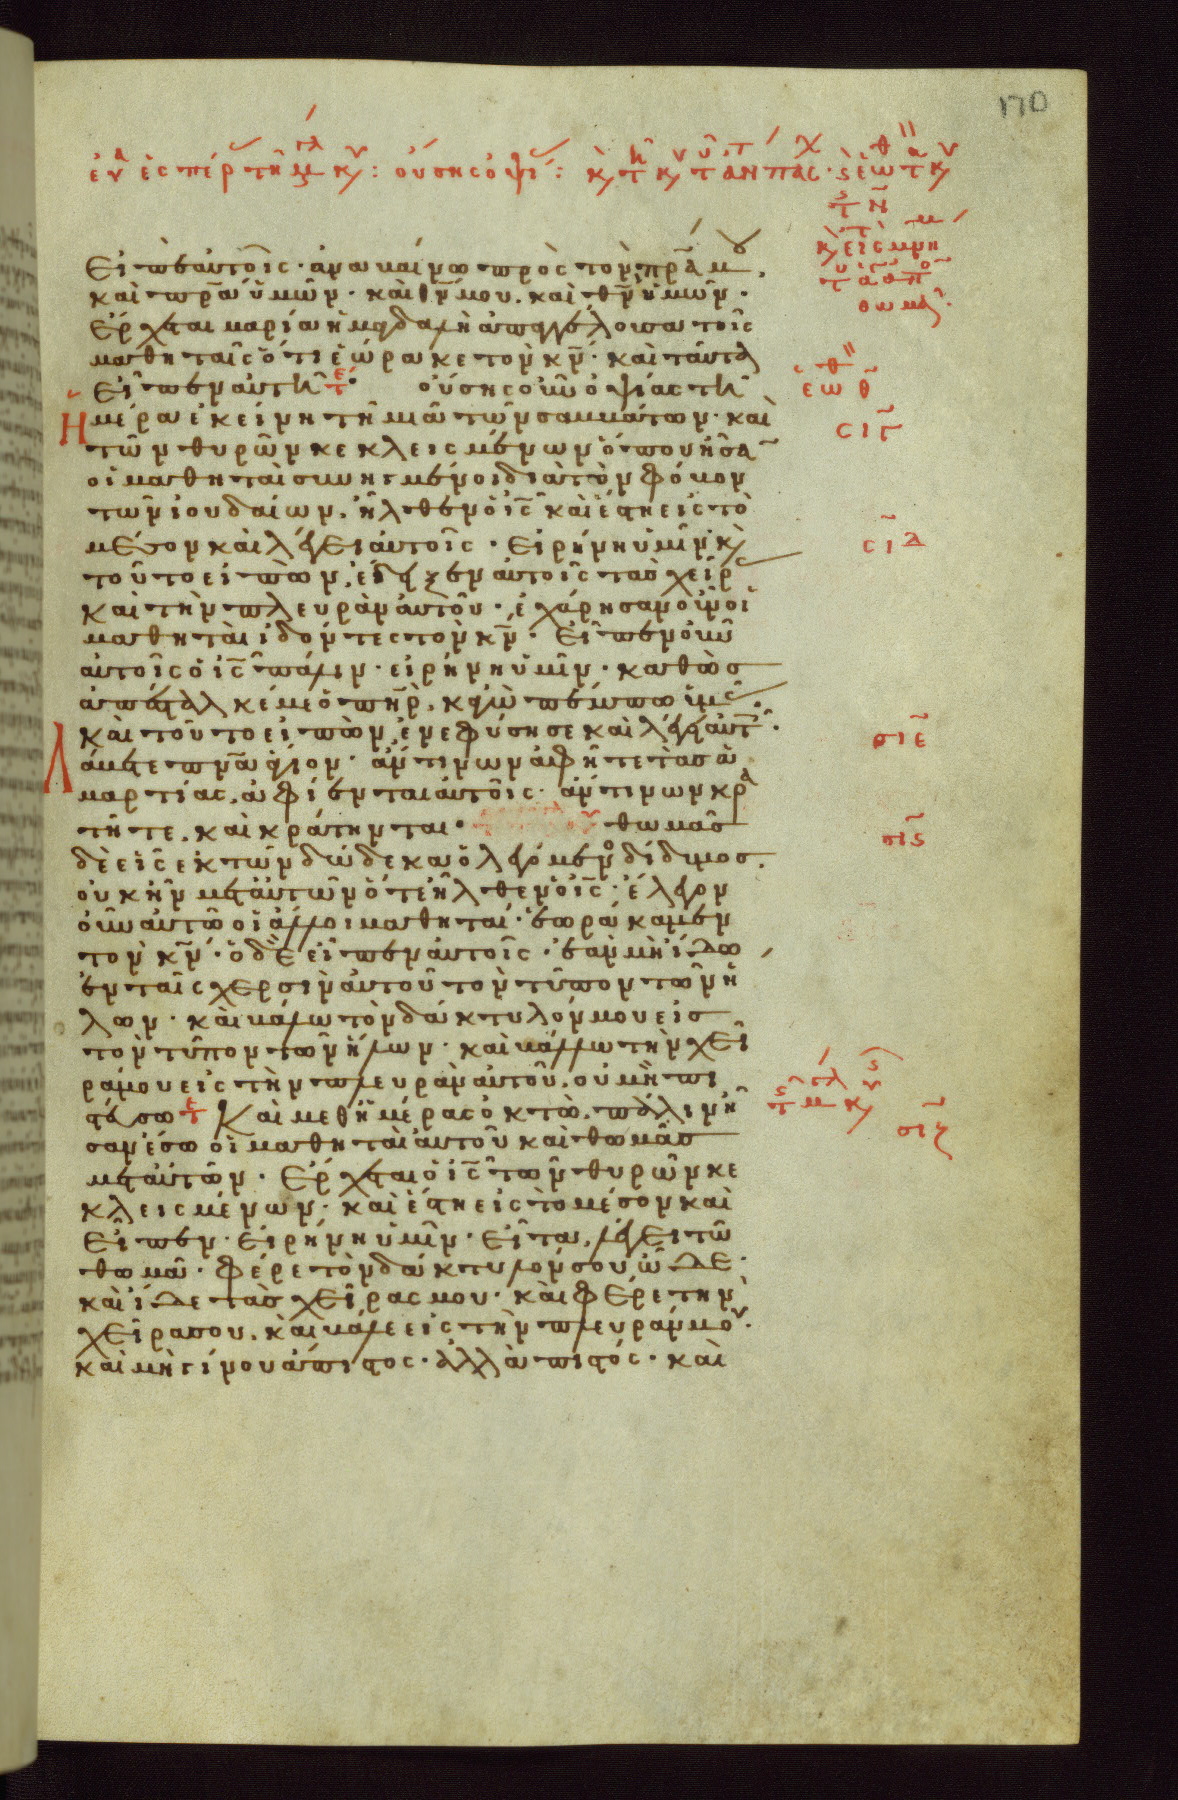 170
εἰπὲ αὐτοῖς· ἀναβαίνω πρὸς τὸν πρ̅α μου,
καὶ πρ̅α ὑμῶν· καὶ θν̅ μου, καὶ θν̅ ὑμῶν·
ἔρχεται μαρία ἡ μαγδαληνὴ ἀπαγγέλλουσα τοῖς
μαθηταῖς ὅτι ἑώρακε τὸν κν̅· καὶ ταῦτα
εἶπεν αὐτῆ· οὔσης οὖν ὀψίας τῆ
ἡμέρα ἐκείνη τῆ μιᾶ τῶν σαββάτων· καὶ
τῶν θυρῶν κεκλεισμένων ὅπου ἦσα
οἱ μαθηταὶ συνηγμένοι διὰ τὸν φόβον
τῶν ἰουδαίων, ἦλθεν ὁ ις̅ καὶ ἔστη εἰς τὸ
μέσον καὶ λέγει αὐτοῖς· εἰρήνη ὑμῖν κὶ
τοῦτο εἰπὼν, ἔδειξεν αὐτοῖς τὰς χεῖρ
καὶ τὴν πλευρὰν αὐτοῦ· ἐχάρησαν οὖν οἱ
μαθηταὶ ἰδόντες τὸν κν̅· εἶπεν οὖν
αὐτοῖς ὁ ις̅ πάλιν· εἰρήνη ὑμῖν· καθὼς
ἀπέσταλκέ με ὁ πηρ̅, κἀγὼ πέμπω ὑμς·
καὶ τοῦτο εἰπὼν, ἐνεφύσησε καὶ λέγει αὐτ·
λάβετε πνα̅ ἅγιον· ἄν τινων ἀφῆτε τὰς ἁ
μαρτίας, ἀφίενται αὐτοῖς· ἄν τινων κρα
τῆτε, καὶ κράτηνται· θωμᾶς
δὲ εἷς ἐκ τῶν δώδεκα ὁ λεγόμενος δίδιμος.
οὐκ ἦν μετ' αὐτῶν ὅτε ἦλθεν ὁ ις̅· ἔλεγον
οὖν αὐτῶ οἱ ἄλλοι μαθηταί· ἑωράκαμεν
τὸν κν̅· ὁ δὲ εἶπεν αὐτοῖς· ἐὰν μὴ ἴδω
ἐν ταῖς χερσὶν αὐτοῦ τὸν τύπον τῶν ἥ
λων· καὶ βάλω τὸν δάκτυλόν μου εἰς
τὸν τύπον τῶν ἥλων· καὶ βάλλω τὴν χεῖ
ρά μου εἰς τὴν πλευρὰν αὐτοῦ, οὐ μὴ πι
στεύσω· Καὶ μεθ' ἡμέρας ὀκτὼ, πάλιν ἦ
σαν ἔσω οἱ μαθηταὶ αὐτοῦ καὶ θωμᾶς
μετ' αὐτῶν· ἔρχεται ὁ ις̅ τῶν θυρῶν κε
κλεισμένων· καὶ ἔστη εἰς τὸ μέσον καὶ
εἶπεν· εἰρήνη ὑμῖν· εἶτα, λέγει τῶ
θωμᾶ· φέρε τὸν δάκτυλόν σου ὧδε·
καὶ ἴδε τὰς χεῖρας μου· καὶ φέρε τὴν
χεῖρα σου, καὶ βάλε εἰς τὴν πλευράν μου·
καὶ μὴ γίνου ἄπιστος· ἀλλὰ πιστός· καὶ
σιγ̅
σιδ̅
σιε̅
σις̅
σιζ̅